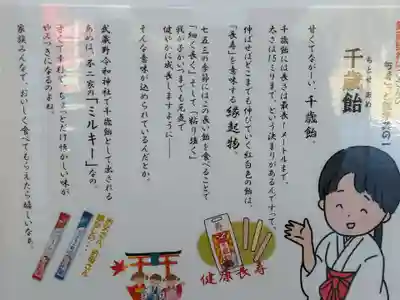 千歳飴
ちとせ あめ
甘くてながーい、千歳飴。
千歳飴には長さは最長1メートルまで、
太さは15ミリまで、という決まりがあるんですって。
伸ばせばどこまでも伸びていく紅白色の飴は、
「長寿」を意味する縁起物。
七五三の季節にはこの長い飴を食べることで
「細く長く」そして「粘り強く」
我が子がいつまでも元気で
健やかに成長しますように―
そんな意味が込められているんだとか。
武蔵野令和神社で千歳飴として出される
あめは、不二家の「ミルキー」なの。
甘くてまれで、ちょっとだけ懐かしい味が
やみつきになるのよね。
家族みんなで、おいしく食べてもらえたら嬉しいなぁ。
健康長寿